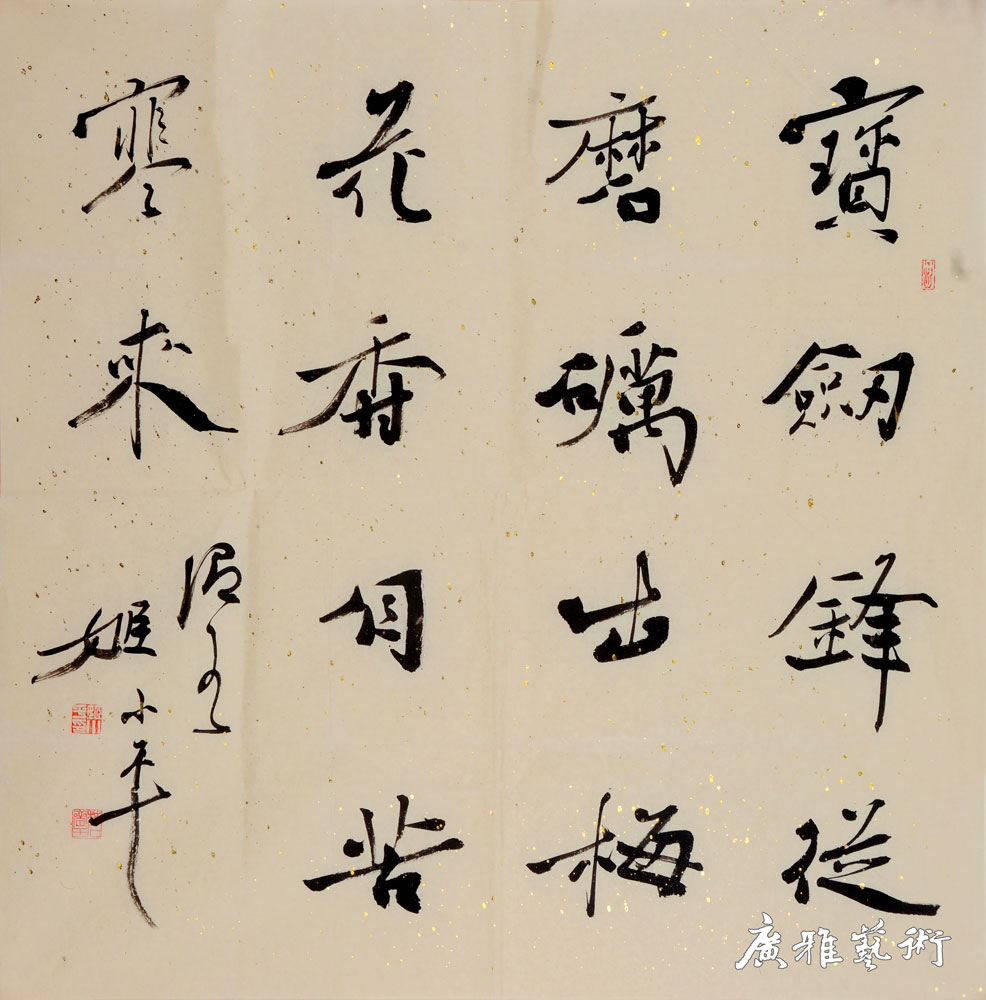 寶劒鋒從
磨礪出梅
花香自苦
寒來
姬小平
廣雅藝術